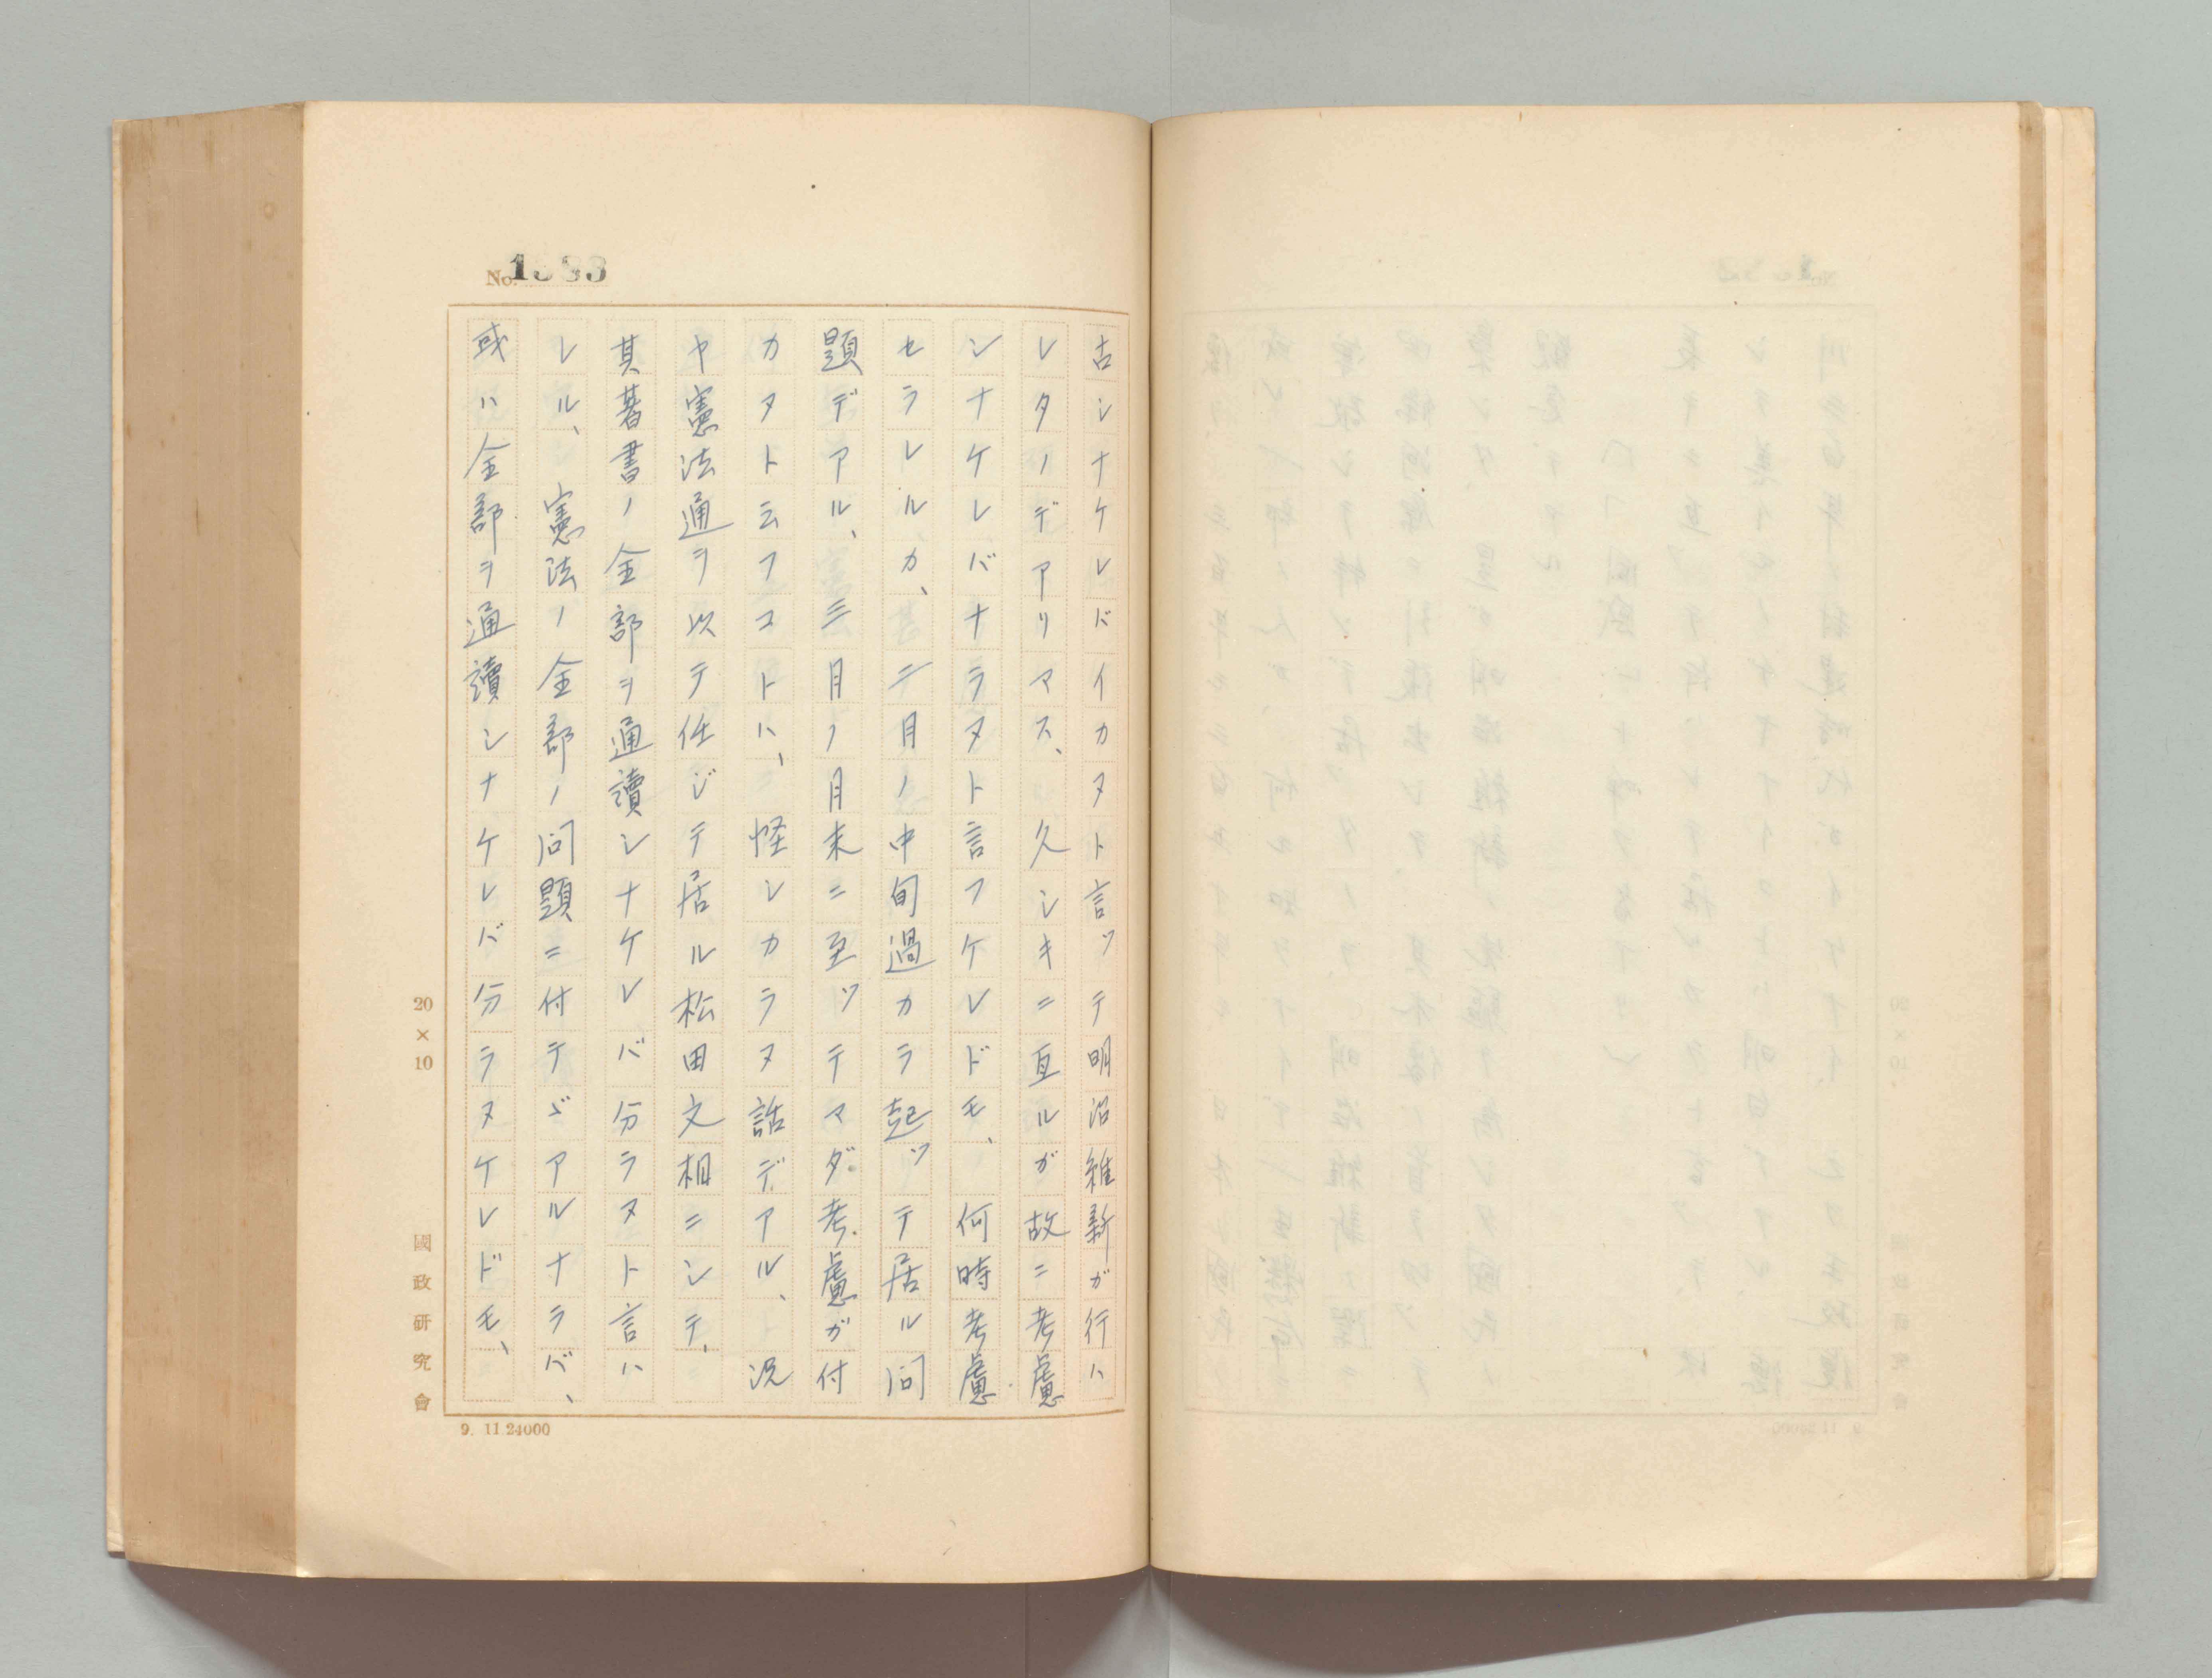 No.1383
古シナケレバイカヌト言ッテ明治維新ガ行ハ
レタノデアリマス、久シキニ亙ルガ故ニ考慮
シナケレバナラヌト言フケレドモ、何時考慮
セラレルカ、二月ノ中旬過カラ起ッテ居ル問
題デアル、三月ノ月末ニ至ッテマダ考慮ガ付
カヌト云フコトハ、怪シカラヌ話デアル、況
ヤ憲法通ヲ以テ任ジテ居ル松田文相ニシテ、
其著書ノ全部ヲ通讀シナケレバ分ラヌト言ハ
レル、憲法ノ全部ノ問題ニ付テヾアルナラバ、
或ハ全部ヲ通讀シナケレバ分ラヌケレドモ、
20×10
國政研究會
9. 11.24000